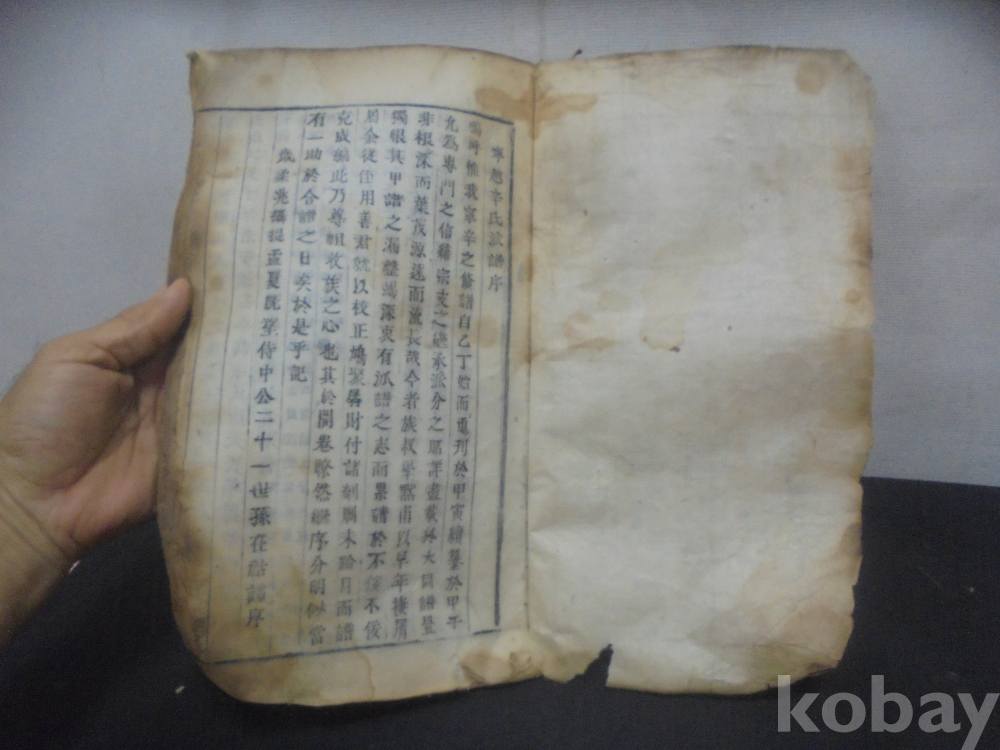 寧越辛氏派譜序
嗚呼惟我寧辛之修譜自乙丁始而重刊於甲寅續鋟於甲子
允爲專門之信籍宗支之承派分之詳盡載於大同譜豈
非根深而葉茂源遠而流長哉今者族叔黙甫以早年
獨恨其甲譜之漏深衷有派譜之志而於不佞不佞
用善君就以校正鳩聚財付諸剞劂未踰月而譜
克成編此乃尊祖收族之心也其於開卷瞭然繼序分明似當
有一助於合譜之日矣於是乎記
歲柔兆攝提孟夏旣望侍中公二十一世孫在 序
kobay